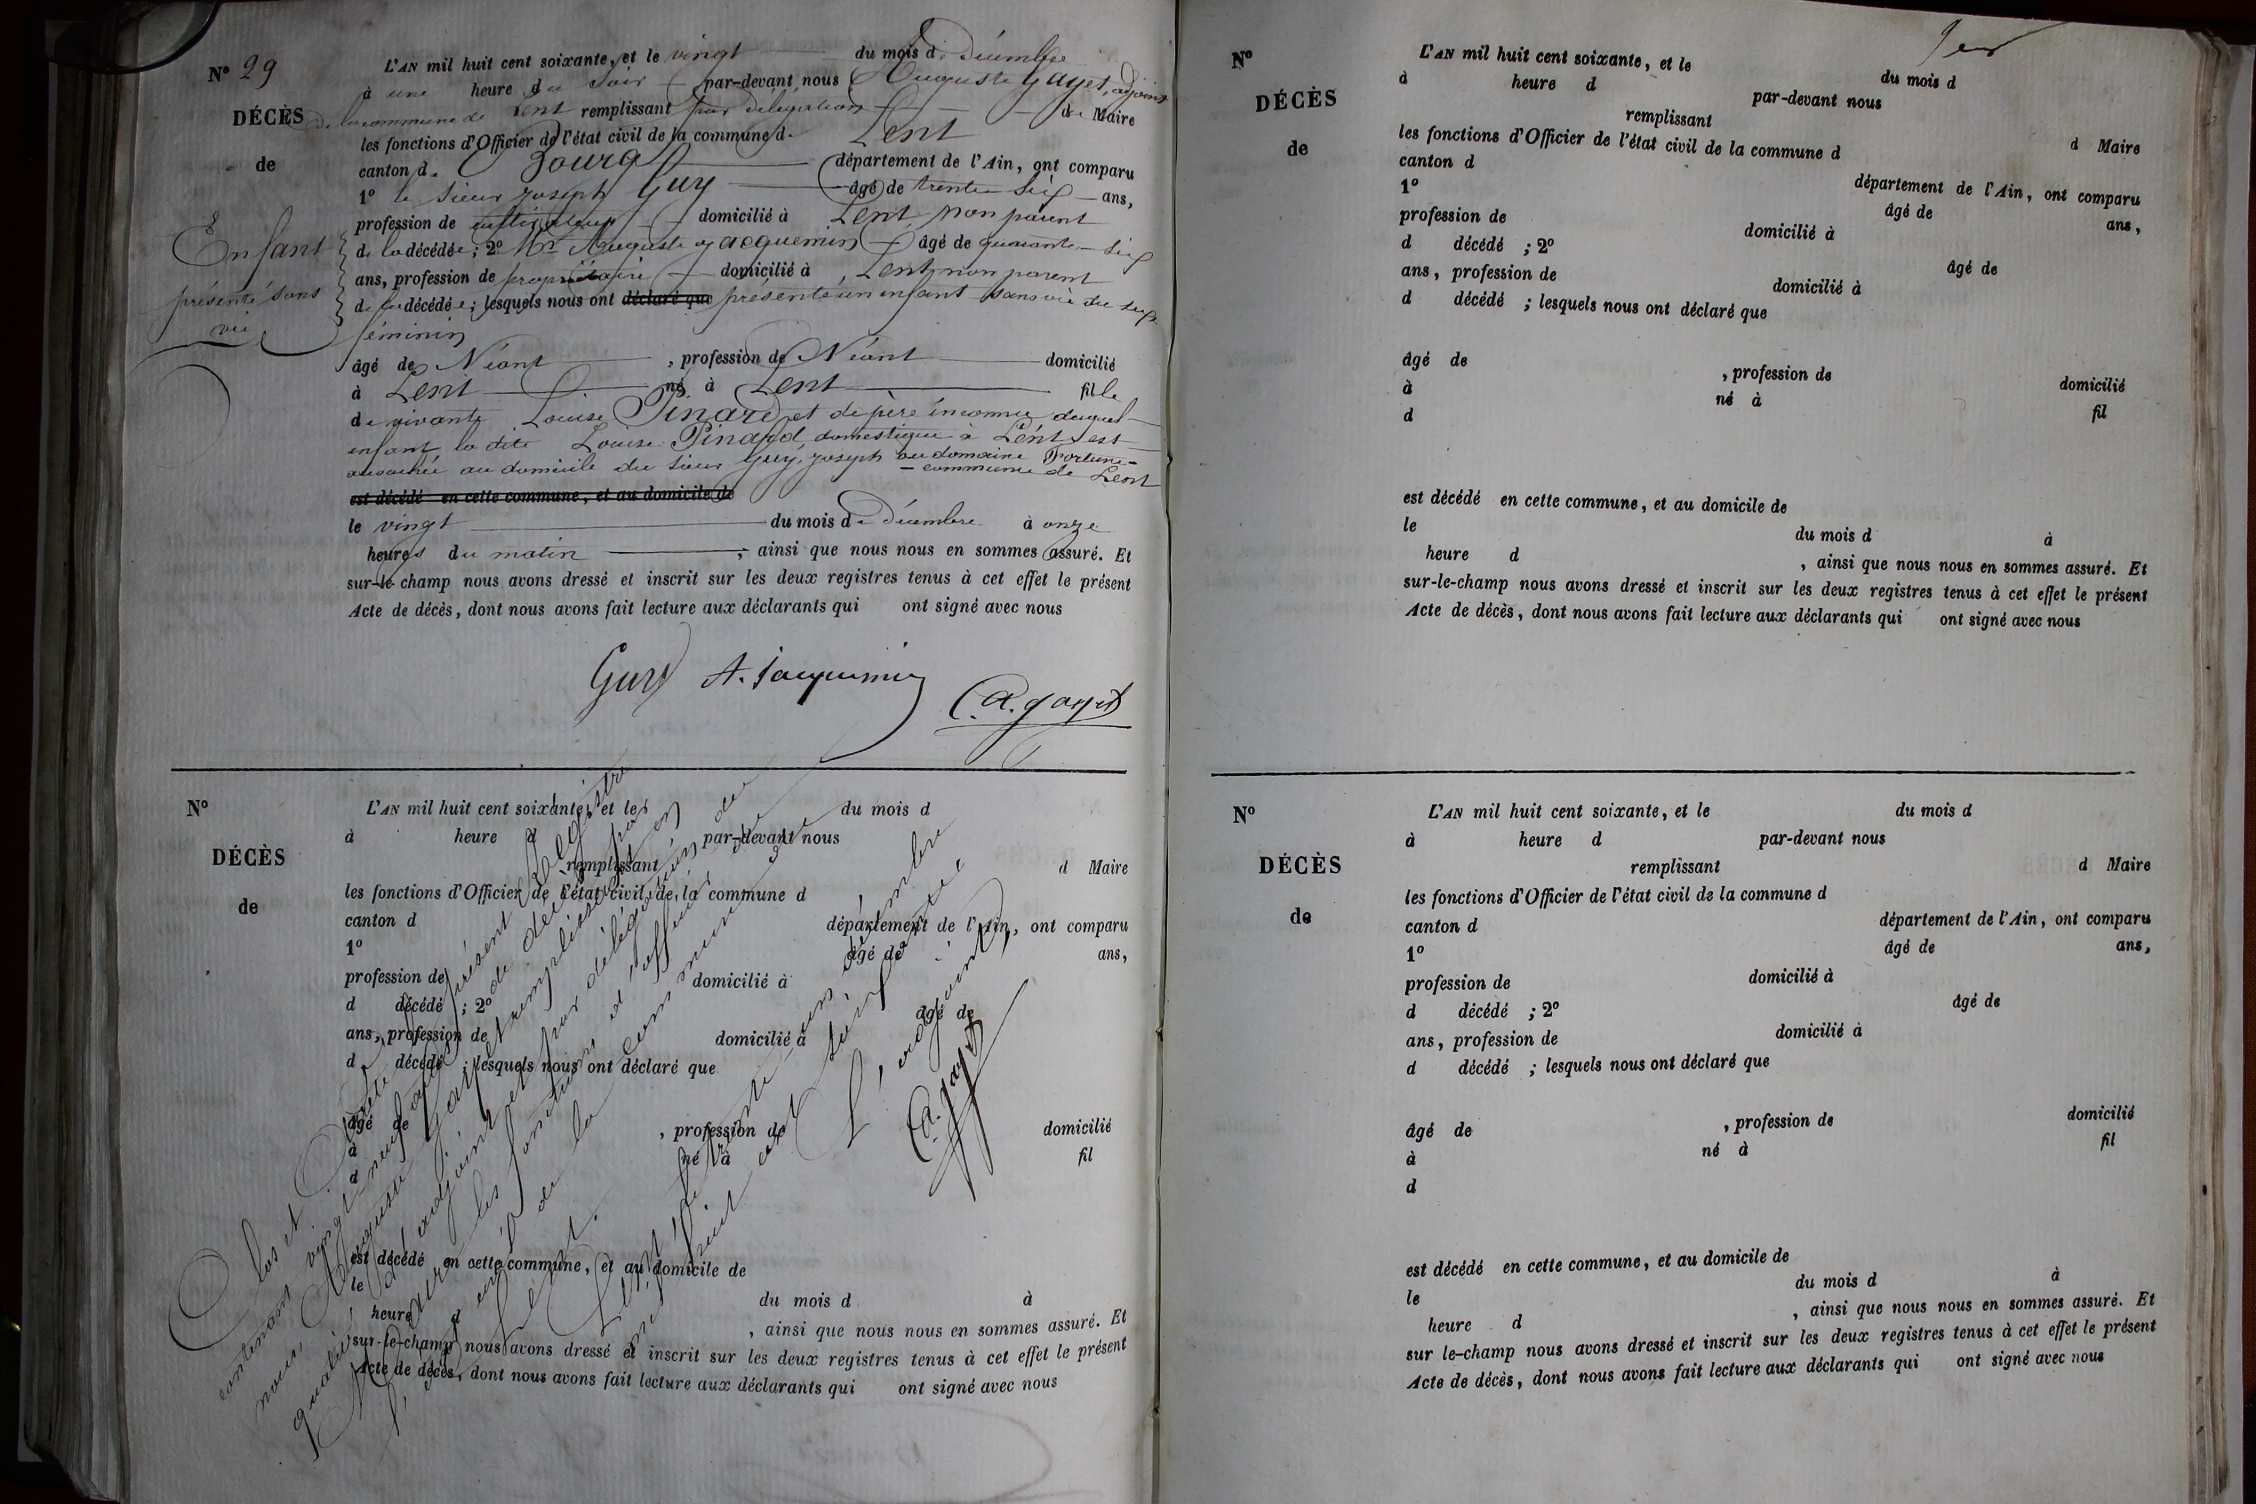 N° 29
DÉCÈS
de
Enfant
présenté sans
vie
L'AN mil huit cent soixante, et le vingt du mois de Décembre
à une heure du soir par-devant nous Auguste Gayet, adjoint
de la commune de Lent remplissant par délégation de Maire
les fonctions d'Officier de l'état civil de la commune d. Lent
canton d. Bourg département de l'Ain, ont comparu
1° le sieur joseph Guy âgé de trente six ans,
profession de cultivateur domicilié à Lent non parent
de la décédée; 2° Mr Auguste jacquemin âgé de quarante six
ans, profession de propriétaire domicilié à Lent non parent
de la décédée; lesquels nous ont déclaré que présenté un enfant sans vie du sexe
féminin
âgé de Néant, profession de Néant domicilié
à Lent né à Lent fille
de vivante Louise Pinard et de père inconnu duquel
enfant la dite Louise Pinard, domestique à Lent est
accouchée au domicile du sieur Guy, joseph au domaine Fortune-
- commune de Lent
est décédé en cette commune, et au domicile de
le vingt du mois de Décembre à onze
heures du matin, ainsi que nous nous en sommes assuré. Et
sur-le champ nous avons dressé et inscrit sur les deux registres tenus à cet effet le présent
Acte de décès, dont nous avons fait lecture aux déclarants qui ont signé avec nous
Guy A. Jacquemin
A. Gayet
N°
DÉCÈS
de
L'AN mil huit cent soixante, et le du mois d
à heure d par-devant nous
remplissant d Maire
les fonctions d'Officier de l'état civil de la commune d
canton d département de l'Ain, ont comparu
1° âgé de ans,
profession de domicilié à
d décédé ; 2° âgé de
ans, profession de domicilié à
d décédé ; lesquels nous ont déclaré que
âgé de , profession de domicilié
à né à fil
d
est décédé en cette commune, et au domicile de
le du mois d à
heure d , ainsi que nous nous en sommes assuré. Et
sur-le-champ nous avons dressé et inscrit sur les deux registres tenus à cet effet le présent
Acte de décès, dont nous avons fait lecture aux déclarants qui ont signé avec nous
Clos et arrêté le présent Registre
contenant vingt-neuf actes de décès par
nous, Auguste Gayet remplissant en
qualité d'adjoint et par délégation du
Maire les fonctions d'officier de
l'état civil de la commune de
Lent.
Lent, le trente un décembre
mil huit cent soixante
L'adjoint,
A. Gayet
N°
DÉCÈS
de
L'AN mil huit cent soixante, et le du mois d
à heure d par-devant nous
remplissant d Maire
les fonctions d'Officier de l'état civil de la commune d
canton d département de l'Ain, ont comparu
1° âgé de ans,
profession de domicilié à
d décédé ; 2° âgé de
ans, profession de domicilié à
d décédé ; lesquels nous ont déclaré que
âgé de , profession de domicilié
à né à fil
d
est décédé en cette commune, et au domicile de
le du mois d à
heure d , ainsi que nous nous en sommes assuré. Et
sur-le-champ nous avons dressé et inscrit sur les deux registres tenus à cet effet le présent
Acte de décès, dont nous avons fait lecture aux déclarants qui ont signé avec nous
N°
DÉCÈS
de
L'AN mil huit cent soixante, et le du mois d
à heure d par-devant nous
remplissant d Maire
les fonctions d'Officier de l'état civil de la commune d
canton d département de l'Ain, ont comparu
1° âgé de ans,
profession de domicilié à
d décédé ; 2° âgé de
ans, profession de domicilié à
d décédé ; lesquels nous ont déclaré que
âgé de , profession de domicilié
à né à fil
d
est décédé en cette commune, et au domicile de
le du mois d à
heure d , ainsi que nous nous en sommes assuré. Et
sur le-champ nous avons dressé et inscrit sur les deux registres tenus à cet effet le présent
Acte de décès, dont nous avons fait lecture aux déclarants qui ont signé avec nous